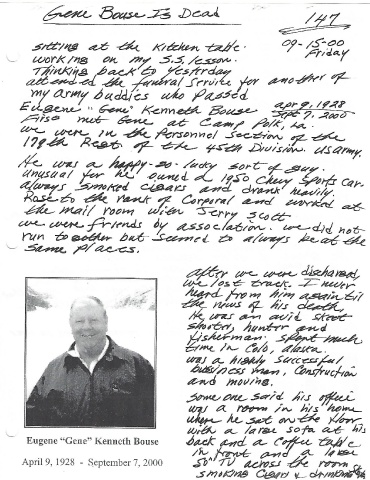 Gene Bouse Is Dead
147
09-15-00
Friday
sitting at the kitchen table
working on my S.S. lesson.
Thinking back to yesterday
attended the funeral service for another of
my army buddies who passed
Eugene "Gene" Kenneth Bouse
apr 9, 1928
Sept 7, 2000
First met Gene at Camp Polk, La.
we were in the Personnel Section of the
179th Regt. of the 45th Division. US army.
He was a happy-go-lucky sort of guy.
Unusual for he owned a 1950 Chevy Sports car.
always smoked cigars and drank heavily.
Rose to the rank of Corporal and worked at
the mail room with Jerry Scott
we were friends by association. we did not
run together but seemed to always be at the
same places.
after we were discharged
we lost track. I never
heard from him again til
the news of his death.
He was an avid skeet
shooter, hunter and
fisherman. spent much
time in Colo, alaska.
was a highly successful
business man, Construction
and moving.
some one said his office
was a room in his home
where he sat on the floor
with a large sofa at his
back and a coffee table
in front and a large
50" TV across the room
smoking cigars & drinking
Eugene "Gene" Kenneth Bouse
April 9, 1928 - September 7, 2000